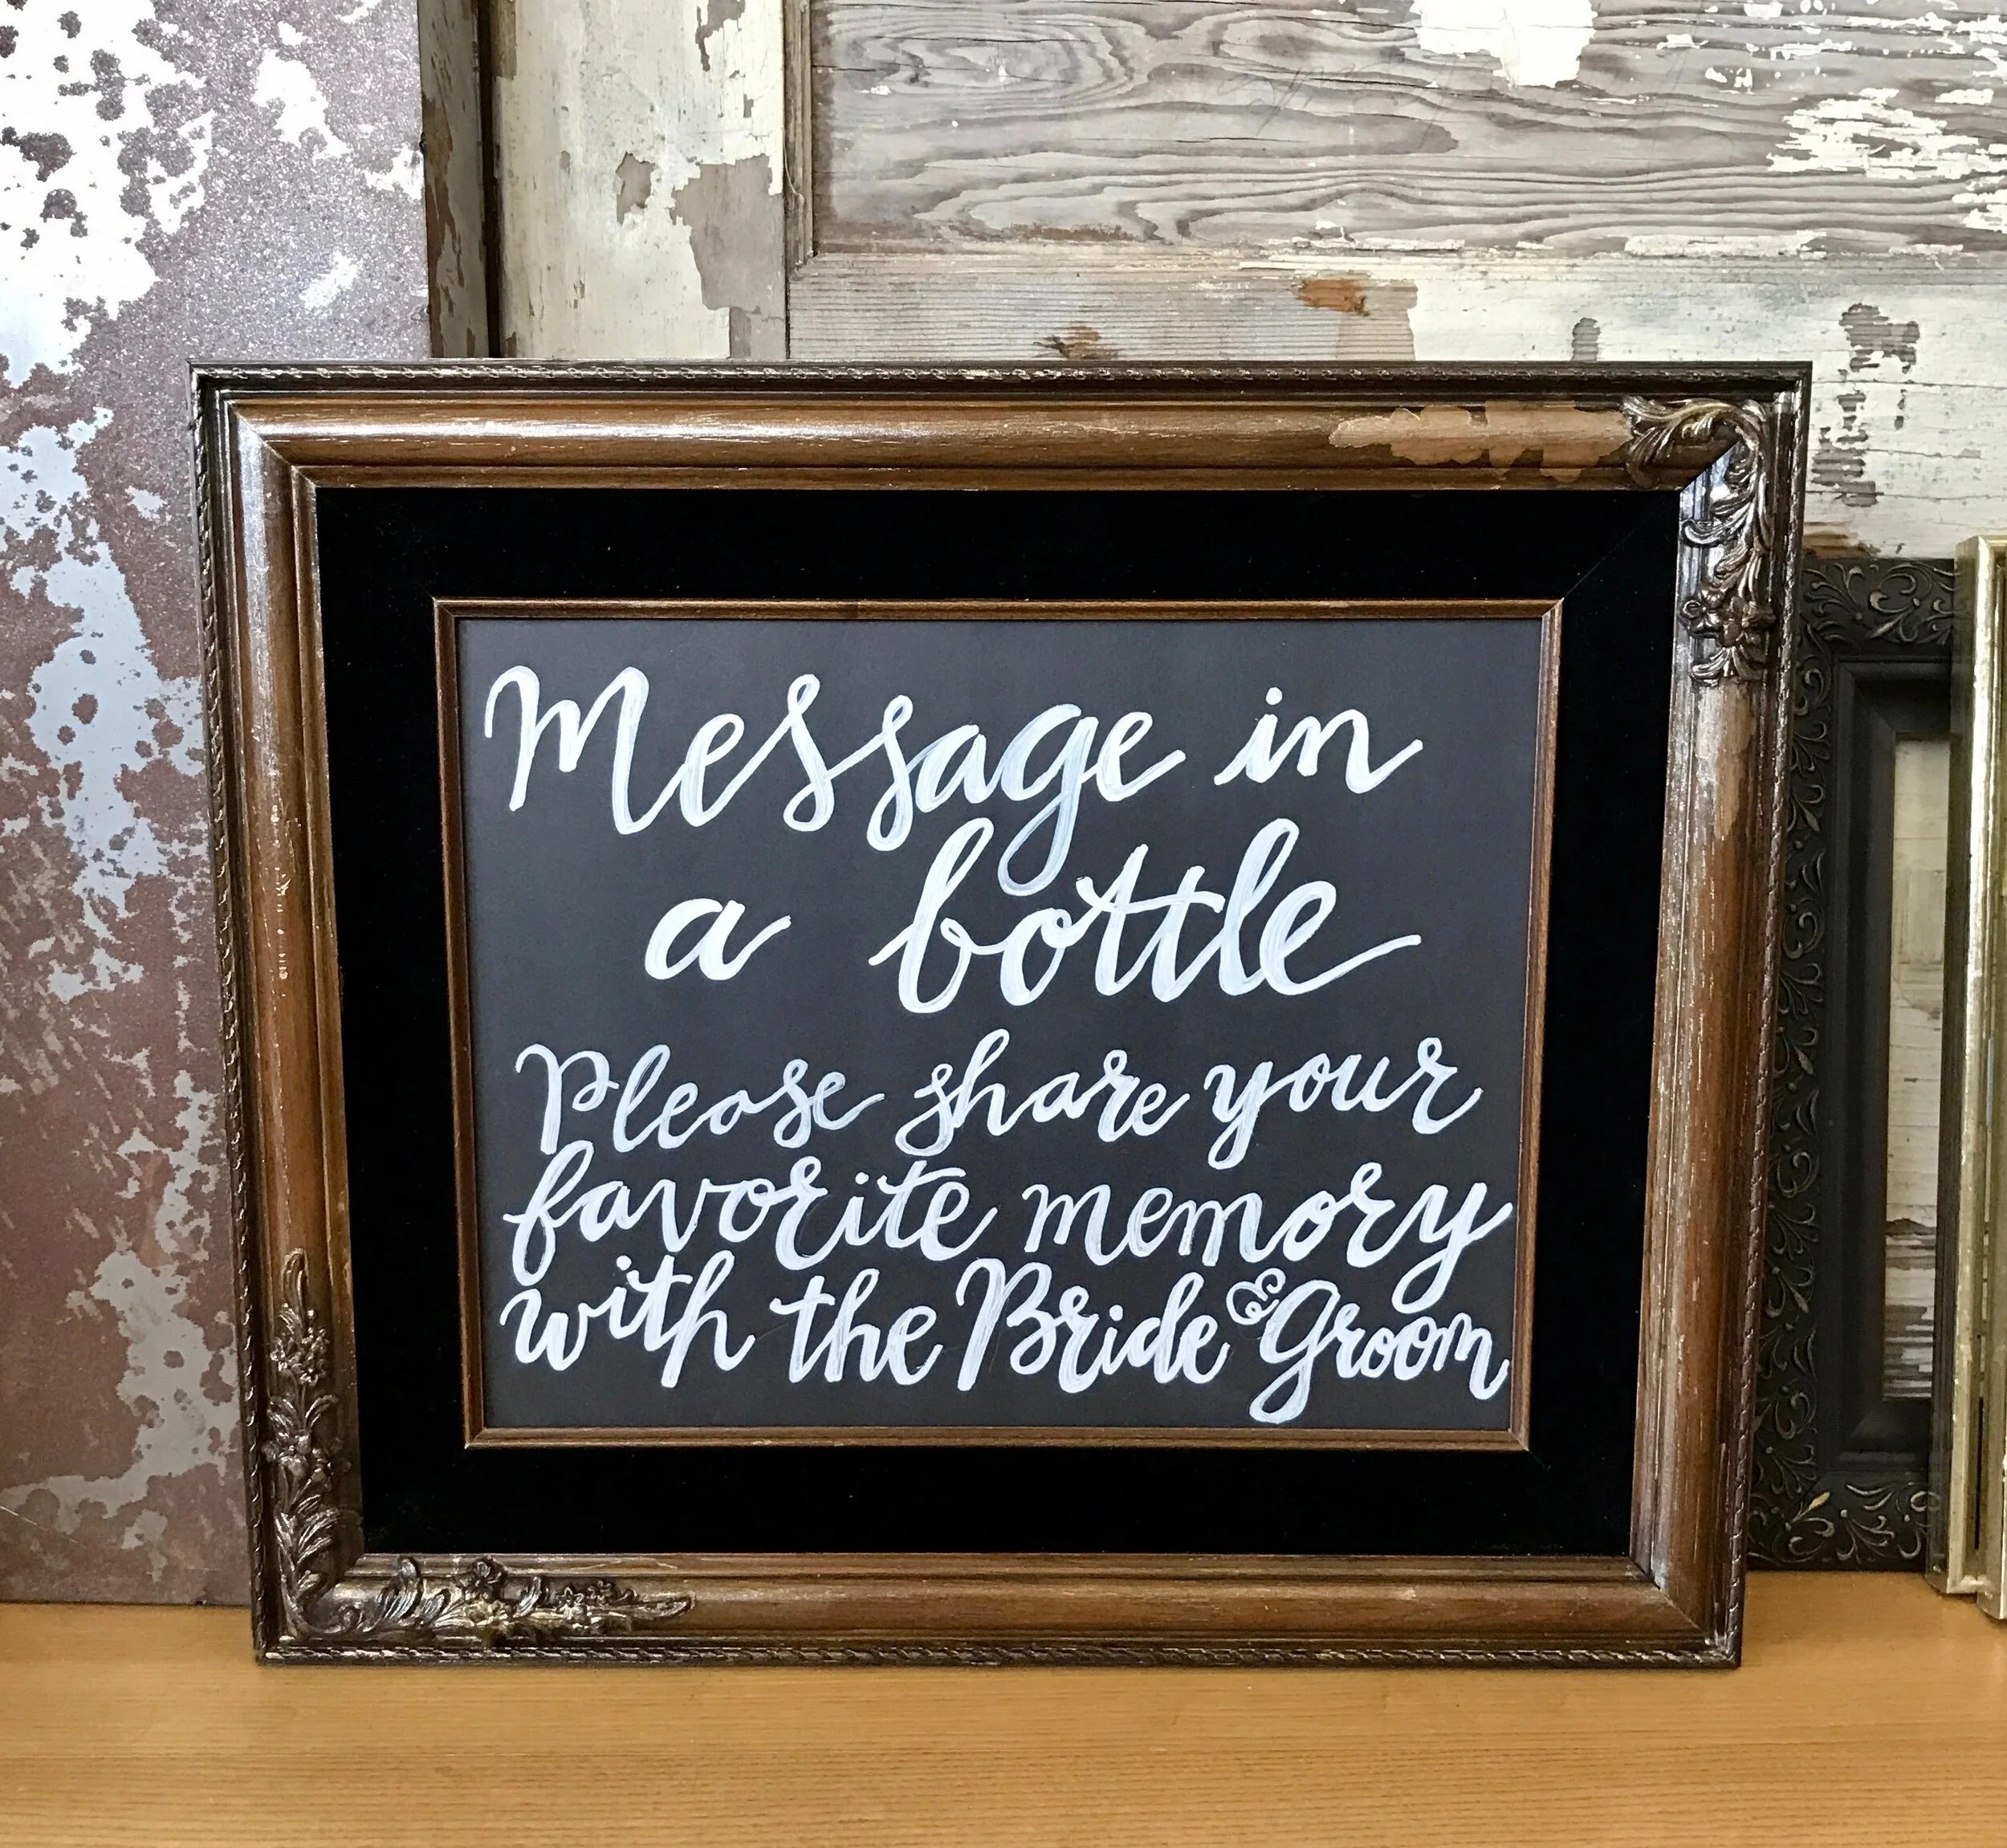 Message in
a bottle
Please share your
favorite memory
with the Bride & Groom